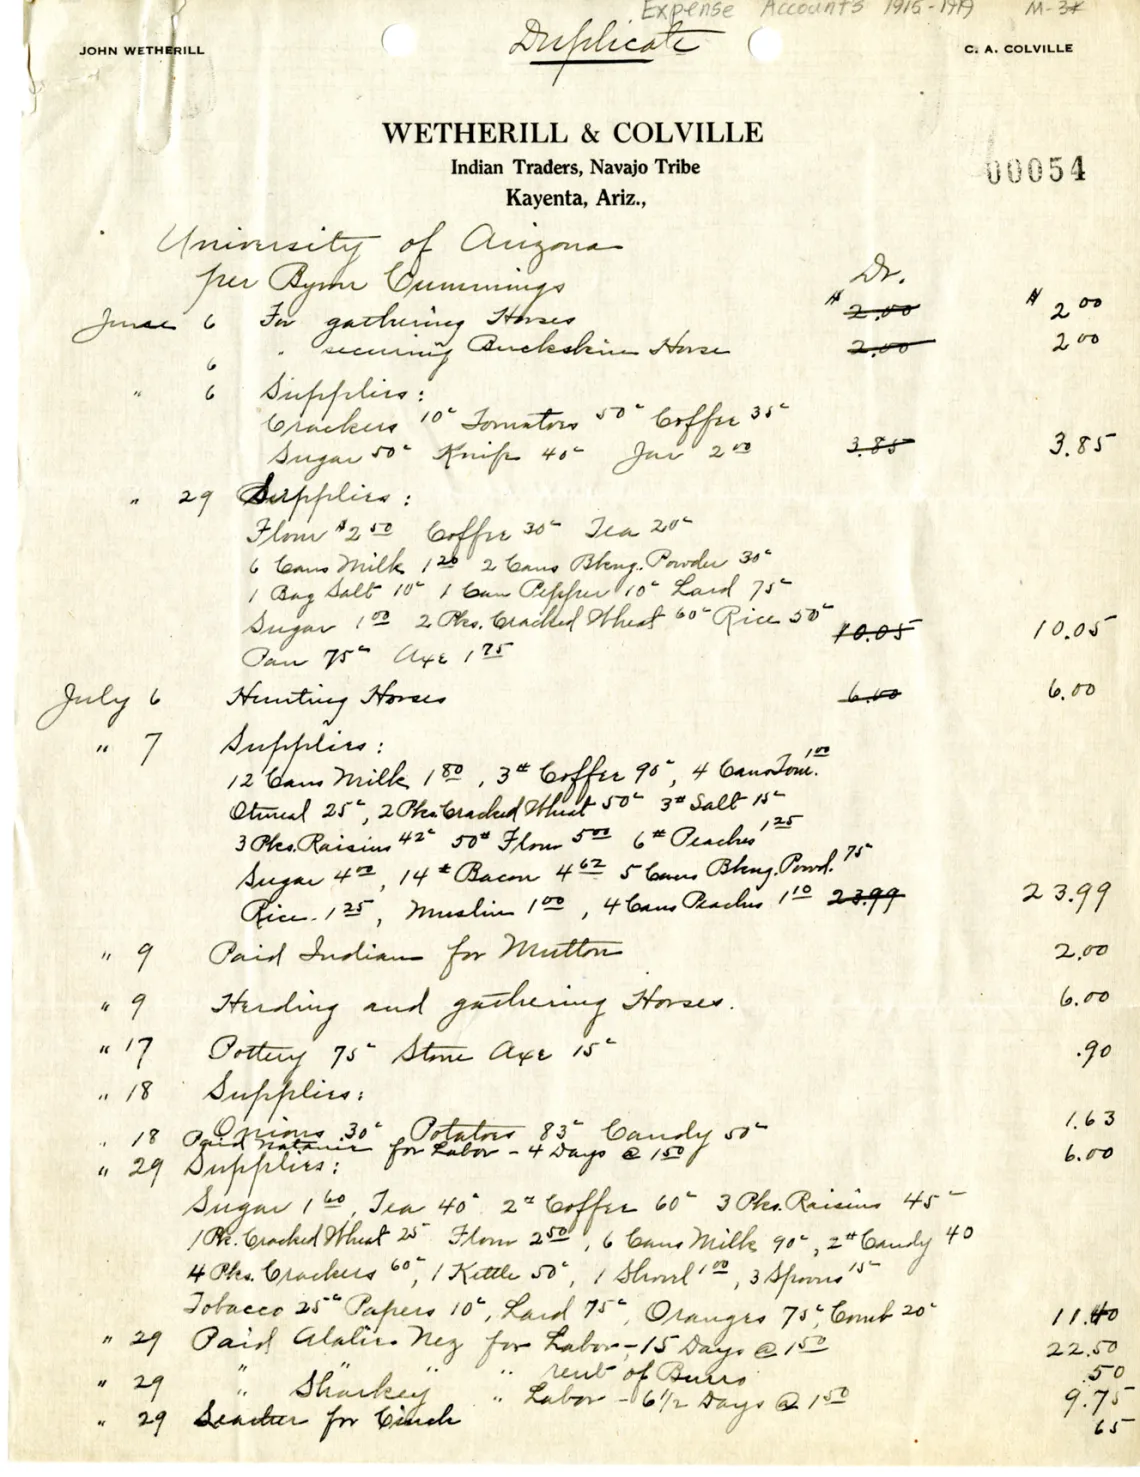 Expense Accounts 1915-1919 M-3
Duplicate
JOHN WETHERILL
C. A. COLVILLE
WETHERILL & COLVILLE
Indian Traders, Navajo Tribe
Kayenta, Ariz.,
00054
University of Arizona
per Byron Cummings Dr.
June 6 For gathering Horses $2.00 $2 00
6 " securing Buckskin Horse 2.00 2 00
" 6 Supplies:
Crackers 10c Tomatoes 50c Coffee 35c
Sugar 50c Knife 40c Jar 2 00 3.85 3.85
" 29 Supplies:
Flour $2 50 Coffee 30c Tea 20c
6 Cans Milk 1 20 2 Cans Bkng. Powder 30c
1 Bag Salt 10c 1 Can Pepper 10c Lard 75c
Sugar 1 00 2 Pks. Cracked Wheat 60c Rice 50c 10.05 10.05
Pan 75c Axe 1 75
July 6 Hunting Horses 6.00 6.00
" 7 Supplies:
12 Cans Milk 1 80, 3# Coffee 90c, 4 Cans Tom. 1 00
Otmeal 25c, 2 Pks Cracked Wheat 50c 3# Salt 15c
3 Pks. Raisins 42c 50# Flour 5 00 6# Peaches 1 25
Sugar 4 00, 14# Bacon 4 62 5 Cans Bkng. Powd. 75
Rice. 1 25, Muslin 1 00, 4 Cans Peaches 1 10 23.99 23.99
" 9 Paid Indian for Mutton 2.00
" 9 Herding and gathering Horses. 6.00
" 17 Pottery 75c Stone Axe 15c .90
" 18 Supplies:
Onions 30c Potatoes 83c Candy 50c 1.63
" 18 Paid for Labor - 4 Days @ 1 50 6.00
" 29 Supplies:
Sugar 1 60, Tea 40c 2# Coffee 60c 3 Pks. Raisins 45c
1 Pk. Cracked Wheat 25 Flour 2 50, 6 Cans Milk 90c, 2# Candy 40
4 Pks. Crackers 60c, 1 Kettle 50c, 1 Shovel 1 00, 3 Spoons 15c
Tobacco 25c Papers 10c, Lard 75c, Oranges 75c, Comb 20c 11.40
" 29 Paid Nez for Labor - 15 Days @ 1 50 22.50
" " " rent of Burro .50
" 29 " Sharkey " Labor - 6 1/2 Days @ 1 50 9.75
" 29 Leather for Cinch 65